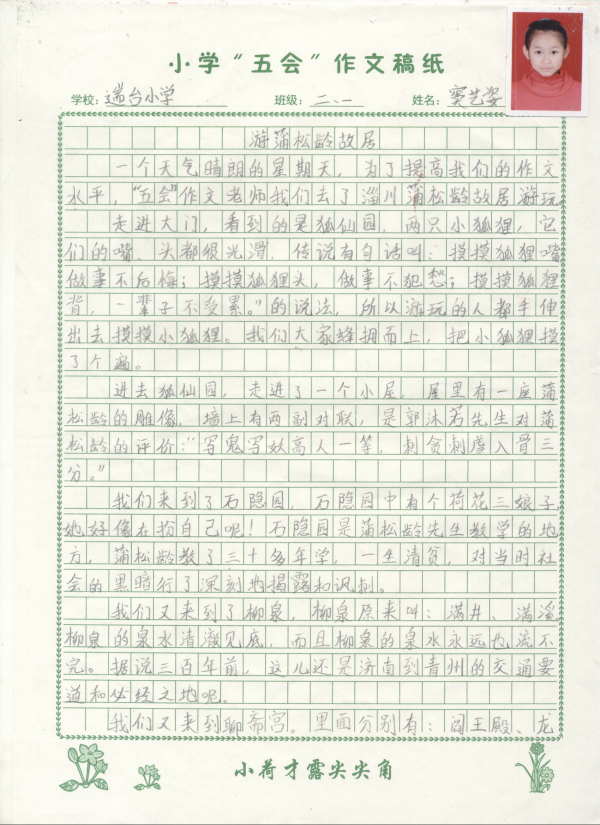 小学“五会”作文稿纸
学校：遄台小学 班级：二、一 姓名：窦艺姿
游蒲松龄故居
一个天气晴朗的星期天，为了提高我们的作文
水平，“五会”作文老师我们去了淄川蒲松龄故居游玩。
走进大门，看到的是狐仙园，两只小狐狸，它
们的嘴、头都很光滑，传说有句话叫：摸摸狐狸嘴
做事不后悔；摸摸狐狸头，做事不犯愁；摸摸狐狸
背，一辈子不受累。”的说法，所以游玩的人都手伸
出去摸摸小狐狸。我们大家蜂拥而上，把小狐狸摸
了个遍。
进去狐仙园，走进了一个小屋，屋里有一座蒲
松龄的雕像，墙上有两副对联，是郭沫若先生对蒲
松龄的评价：“写鬼写妖高人一等，刺贪刺虐入骨三
分。”
我们来到了石隐园，石隐园中有个荷花三娘子
她好像在扮自己呢！石隐园是蒲松龄先生教学的地
方，蒲松龄教了三十多年学，一生清贫，对当时社
会的黑暗行了深刻地揭露和讽刺。
我们又来到了柳泉，柳泉原来叫：满井、满溪
柳泉的泉水清澈见底，而且柳泉的泉水永远也流不
完。据说三百年前，这儿还是济南到青州的交通要
道和必经之地呢。
我们又来到聊斋宫。里面分别有：阎王殿、龙
小荷才露尖尖角